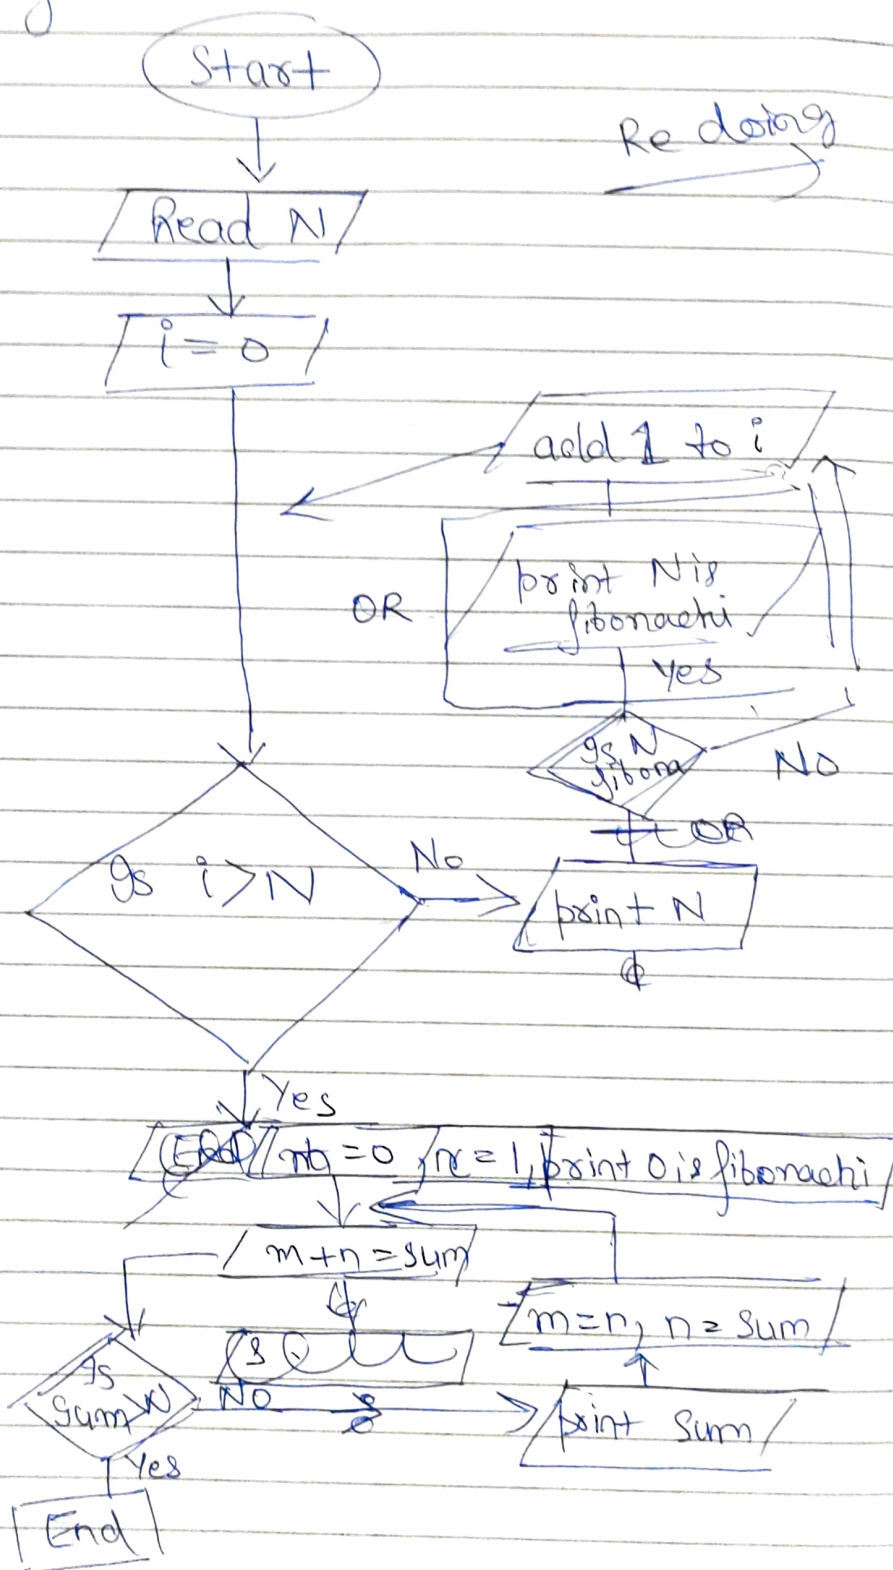 Start
Re doing
Read N
i = 0
add 1 to i
print N is
fibonachi
OR
Yes
Is N
fibona
No
OR
Is i > N
No
print N
Yes
= 0, n = 1, print 0 is fibonachi
m + n = sum
m = n, n = sum
Is
Sum > N
NO
print sum
Yes
End